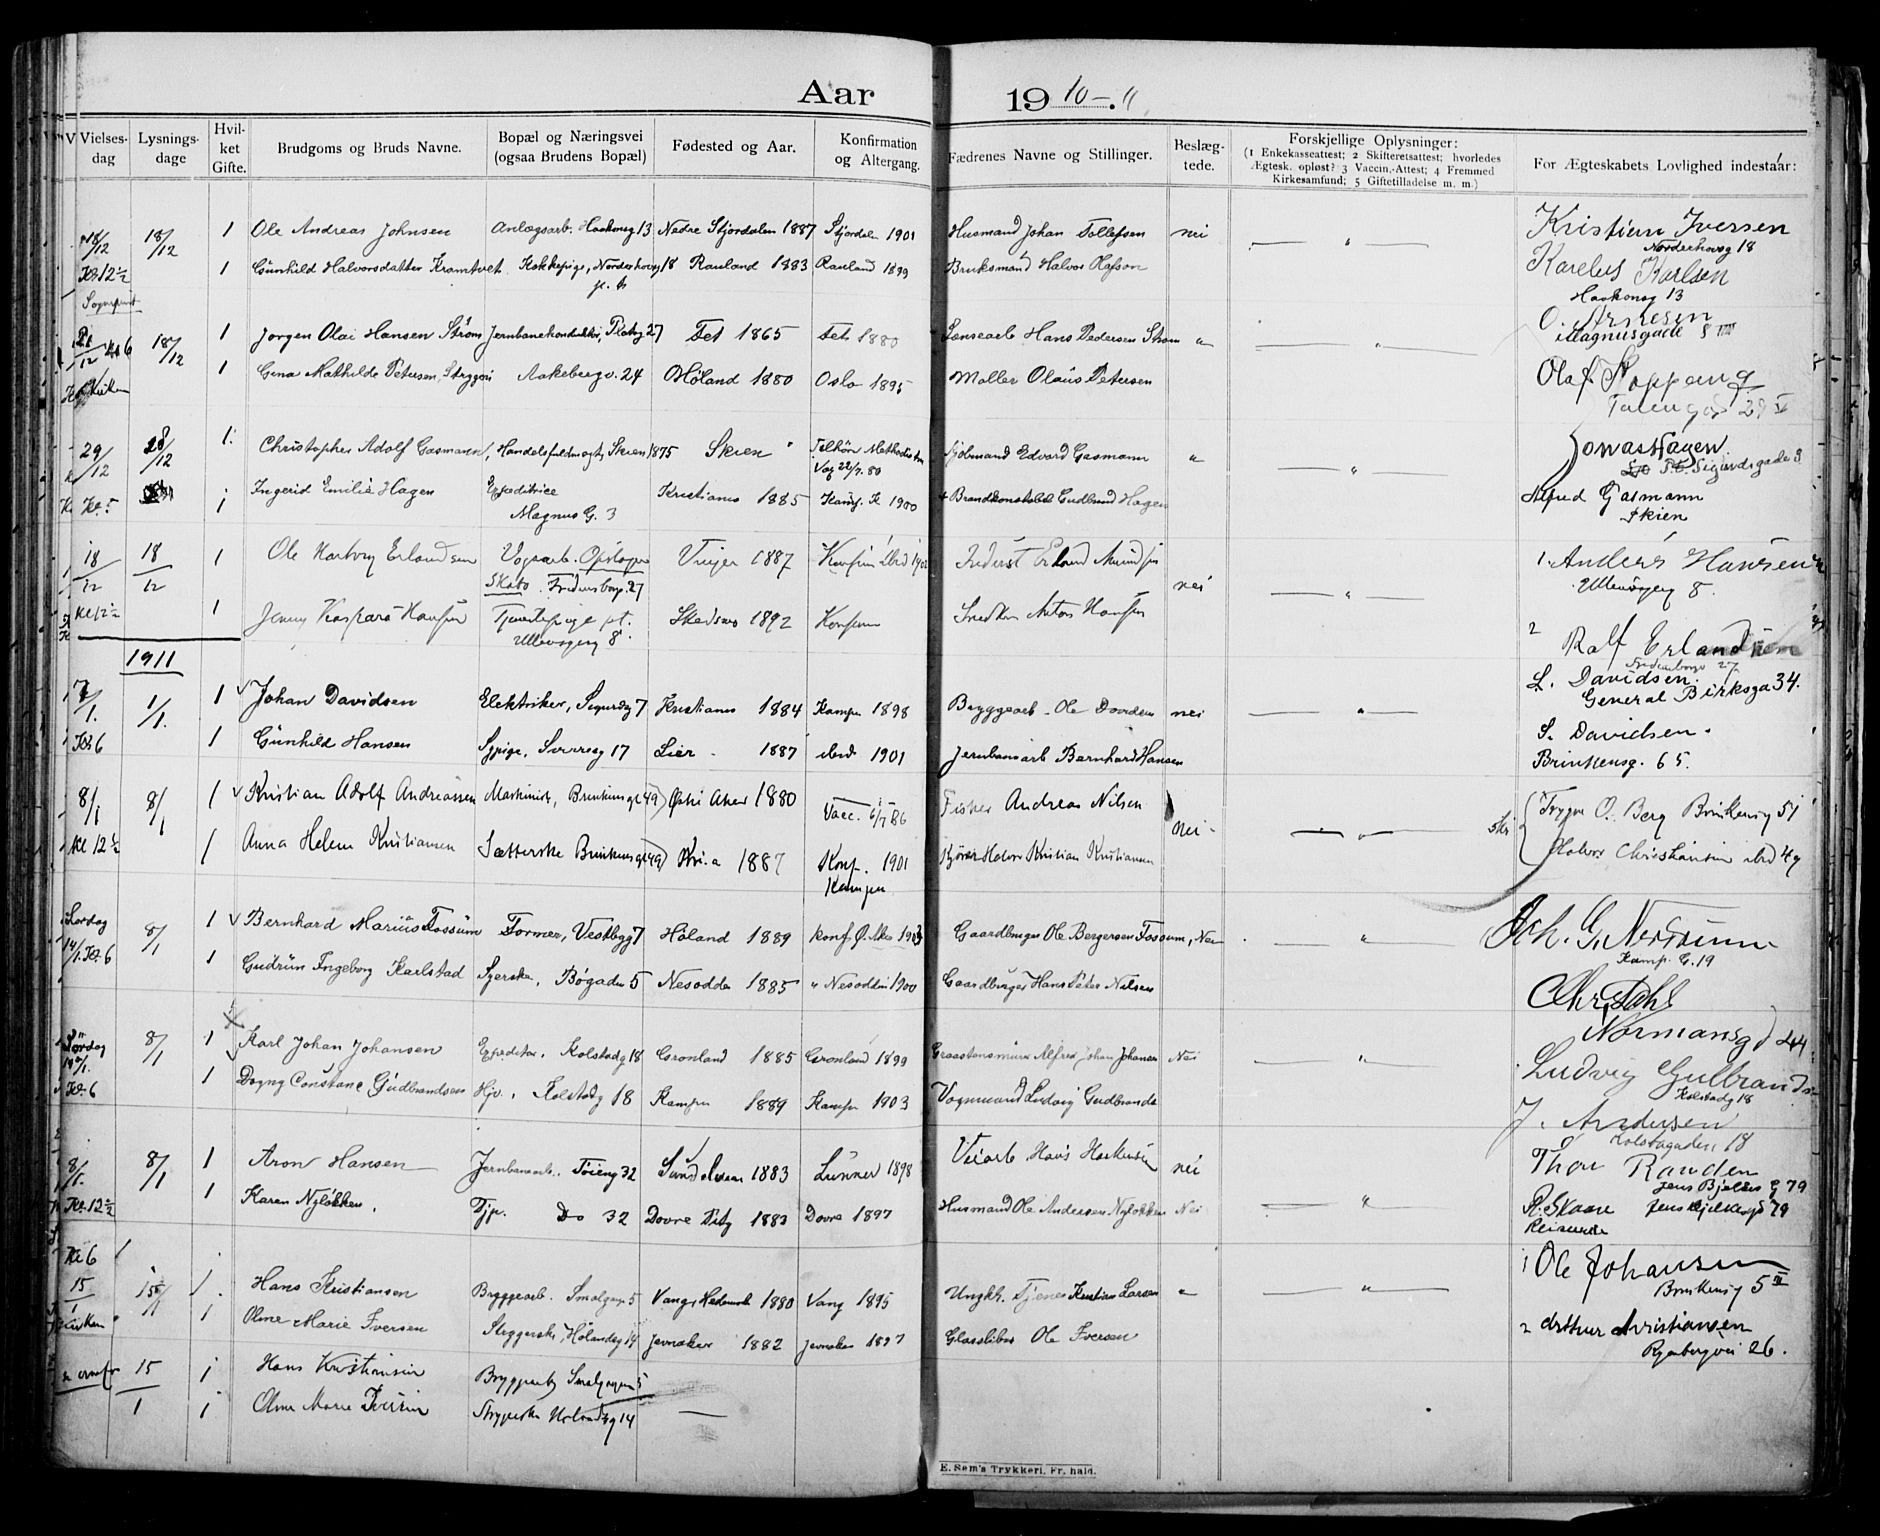 Aar 1910-11
Vielses-dag Lysnings-dage Hvil-ket Gifte. Brudgoms og Bruds Navne. Bopæl og Næringsvei (ogsaa Brudens Bopæl) Fødested og Aar. Konfirmation og Altergang. Fædrenes Navne og Stillinger. Beslæg-tede. Forskjellige Oplysninger: (1 Enkekasseattest; 2 Skifteretsattest; hvorledes Ægtesk. opløst? 3 Vaccin.-Attest; 4 Fremmed Kirkesamfund; 5 Giftetilladelse m. m.) For Ægteskabets Lovlighed indestaar:
18/12 18/12 1 Ole Andreas Johnsen Anlægsarb. Haakonsg 13 Nedre Stjordalen 1887 Stjordalen 1901 Husmand Johan Tollefsen nei " Kristian Iversen
Norderhovsg 18
Kl. 12 1/2 1 Gunhild Halvorsdatter Kramtvet Kokkepige, Norderhovsg 18 Rauland 1883 Rauland 1899 Bruksmand Halvor Olafson Karelius Karlsen
Haakonsg 13
Kl 6 18/12 1 Jørgen Olai Hansen Strøm Jernbanekonduktør, Platog 27 Fet 1865 Fet 1880 Hans Pedersen Strøm " " O. Arnesen
Magnusgade 8 III
Kirken 1 Gina Mathilde Petersen, Aakebergv. 24 Høland 1880 Oslo 1895 Møller Olaus Petersen Olaf Koppang
29 IV
29/12 28/12 1. Christopher Adolf Gasmann, Handelsfuldmægtig Skien 1875 Skien Methodist
Vac 22/7.80 Edvard Gasmann " " Jonas Hagen
Sigurdsgade 3
Kl. 5 1 Ingerid Emilie Hagen Expeditrice Kristiania 1885 Kamp. K 1900 + Brandkonstabel Gudbrand Hagen Alfred Gasmann
Magnus G. 3 Skien
18/12 18/12 1 Ole Hartvig Erlandsen Vognarb. Opslager Vinger 1887 Erland nei " 1. Anders Hansen
Skabo. Fredensborgv. 27 Ullevolsveg 8.
Kl 12 1/2 1 Jenny Kaspara Hansen Tjenestepige pt. Skedsmo 1892 Snedker Anton Hansen 2 Ralf Erlandsen
Ullevolsveg 8. Fredensborgv 27
1911
7/1. 1/1. 1 Johan Davidsen Elektriker, Sigurdsg 7 Kristiania 1884 Kampen 1898 Bryggearb. Ole Davidsen nei " L. Davidsen.
General Birksga 34.
Kl. 6 1 Gunhild Hansen Sypige, Sverresg 17 Lier 1887 ibid 1901 Jernbanearb Bernhard Hansen S. Davidsen.
Brinkensg. 65.
8/1 8/1 1 Kristian Adolf Andreassen Maskinist, Brinkensgt 49 Østre Aker 1880 Vacc. 6/7 86 Fisker Andreas Nilsen nei " Trygve O. Berg Brinkensg 51
Kl 12 1/2 1 Anna Helene Kristiansen Sætterske Brinkensgt 49 Kr.a 1887 Konf. 1901 Kristian Kristiansen Halvor Christiansen ibid 49
Kampen
Lørdag 8/1 1 Bernhard Marius Fossum Former, Vestbyg 7 Høland 1889 Konf. Ø. Aker 1903 Gaardbruger Ole Bergersen Fossum, Nei " Joh. G. Nersrum
14/1. Kl. 6 Kamp. G. 19
1 Gudrun Ingeborg Karlstad Syerske, Bøgaden 5 Nesodden 1885 " Nesodden 1900 Gaardbruger Hans Peter Nilsen Chr. Dahl
Normansgd 44
Lørdag 8/1 1 Karl Johan Johansen Expeditør. Kolstadg 18 Grønland 1885 Grønland 1899 Alfred Johan Johansen Nei " Ludvig Gulbrandsen
14/1. Kolstadg 18
Kl. 6 1 Dagny Constance Gudbrandsen Hjv. Kolstadg 18 Kampen 1889 Kampen 1903 Vognmand Ludvig Gudbrandsen J. Andersen
Kolstadgaden 18
8/1. 8/1 1 Aron Hansen Jernbanearb. Tøieng 32 1883 Lunner 1898 Veiarb Hans nei Thor Randen
Jens Bjelkes G 79
Kl. 12 1/2 1 Karen Nyløkken. Tjp. Do 32 Dovre 1883 Dovre 1897 Husmand Ole Andersen Nyløkken Nei " R. Skaare Jens Bjelkesgd 79
Reisende
Kl 6
15/1 15/1 1 Hans Kristiansen Bryggearb. Smalgangen 5 Vang, Hedemark 1880 Vang 1895 Ungk. Tjener Kristian Larsen " " 1 Ole Johansen
Brinkensg 5 III
Kirken 1 Oline Marie Iversen Strygerske, Hølandsg 14 Jevnaker 1882 Jevnaker 1897 Ole Iversen 2 Arthur Kristiansen
Ryenbergvei 26.
15 1 Hans Kristiansen Bryggearb Smalgangen 5
1 1 Oline Marie Iversen Strygerske Hølandsg 14
E. Sem's Trykkeri, Fr. hald.